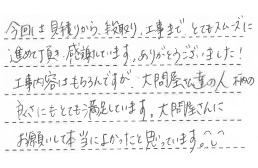 今回は見積りから、段取り、工事まで、とてもスムーズに
進めて頂き、感謝しています。ありがとうございました！
工事内容はもちろんですが、大問屋さん達の人柄の
良さにもとても満足しています。大問屋さんに
お願いして本当によかったと思っています。